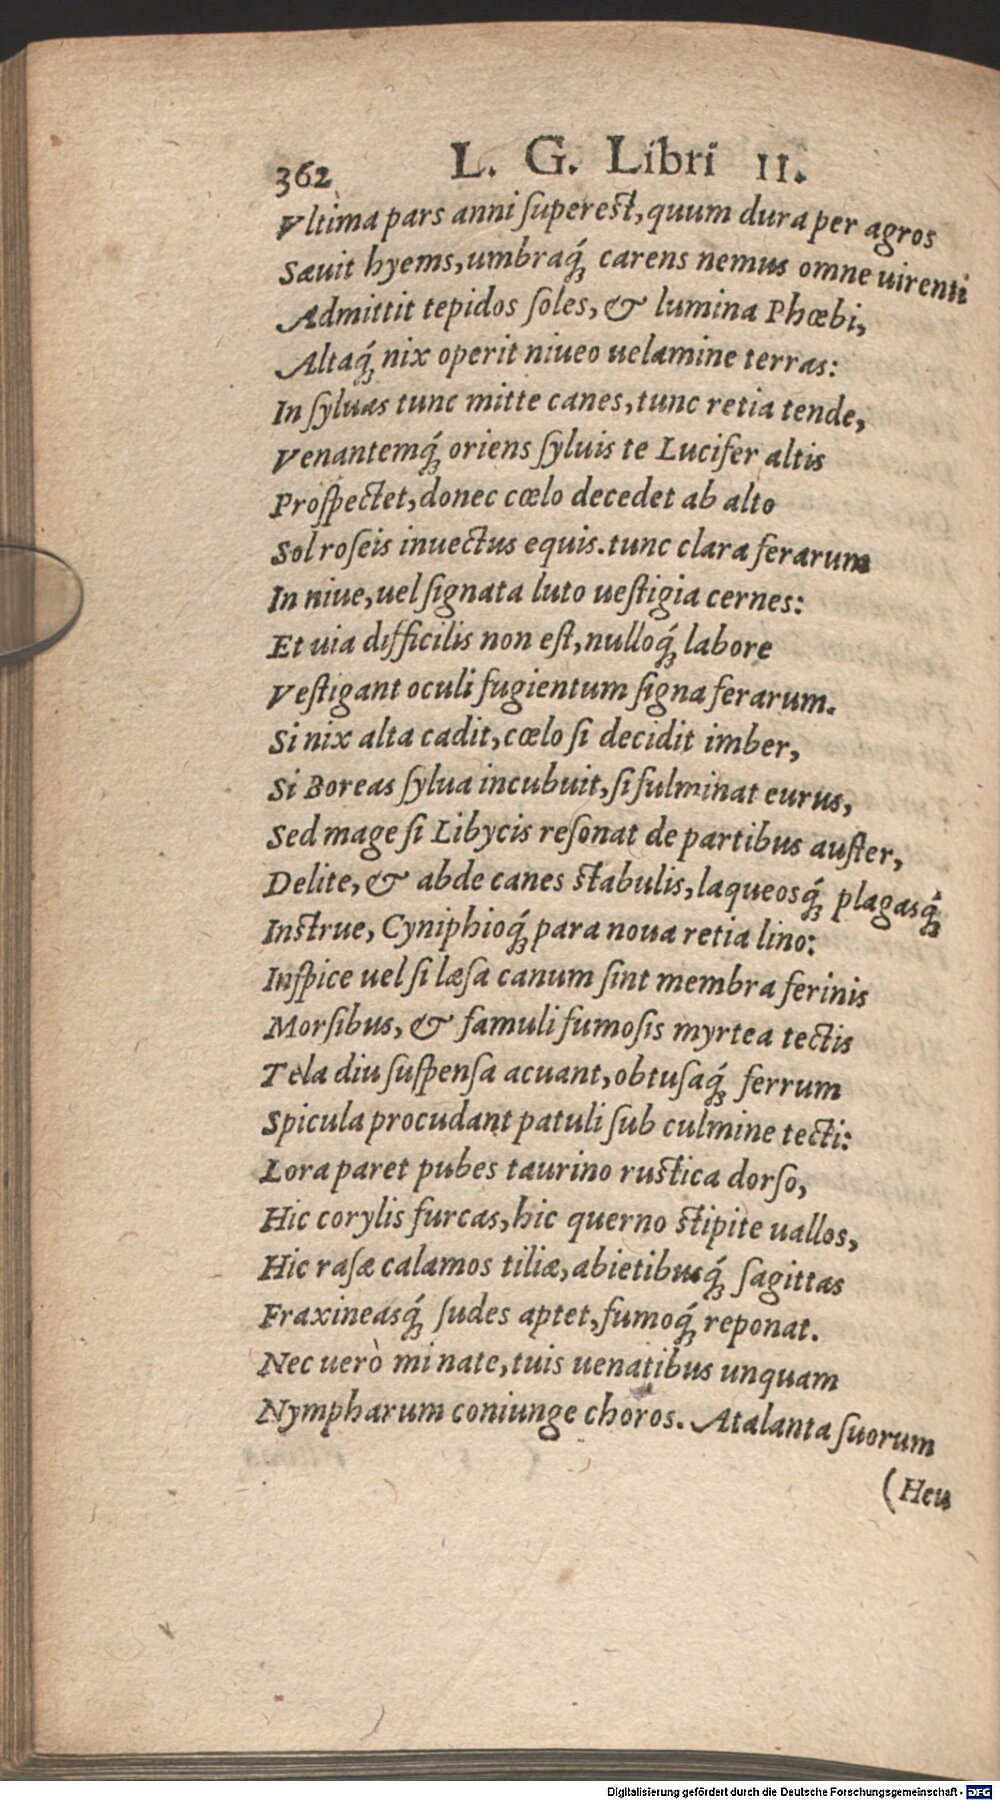 362 L. G. Libri II.
Vltima pars anni ſupereſt, quum dura per agros
Sæuit hyems, umbraq́ꝫ carens nemus omne uirenti
Admittit tepidos ſoles, & lumina Phœbi,
Altaq́ꝫ nix operit niueo uelamine terras:
In ſyluas tunc mitte canes, tunc retia tende,
Venantemq́ꝫ oriens ſyluis te Lucifer altis
Proſpectet, donec cœlo decedet ab alto
Sol roſeis inuectus equis. tunc clara ferarum
In niue, uel ſignata luto ueſtigia cernes:
Et uia difficilis non eſt, nulloq́ꝫ labore
Veſtigant oculi fugientum ſigna ferarum.
Si nix alta cadit, cœlo ſi decidit imber,
Si Boreas ſylua incubuit, ſi fulminat eurus,
Sed mage ſi Libycis reſonat de partibus auſter,
Delite, & abde canes ſtabulis, laqueosq́ꝫ plagasq́ꝫ
Inſtrue, Cyniphioq́ꝫ para noua retia lino:
Inſpice uel ſi læſa canum ſint membra ferinis
Morſibus, & famuli fumoſis myrtea tectis
Tela diu ſuſpenſa acuant, obtuſaq́ꝫ ferrum
Spicula procudant patuli ſub culmine tecti:
Lora paret pubes taurino ruſtica dorſo,
Hic corylis furcas, hic querno ſtipite uallos,
Hic raſæ calamos tiliæ, abietibusq́ꝫ ſagittas
Fraxineasq́ꝫ ſudes aptet, fumoq́ꝫ reponat.
Nec uerò mi nate, tuis uenatibus unquam
Nympharum coniunge choros. Atalanta ſuorum
(Heu
Digitalisierung gefördert durch die Deutsche Forschungsgemeinschaft - DFG